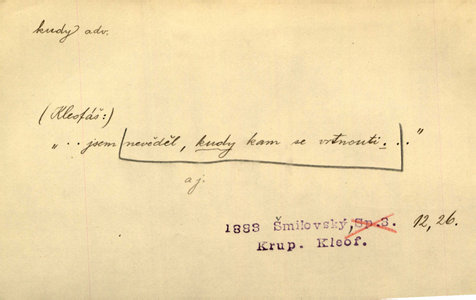 kudy adv.
(Kleofáš:)
„ . . jsem nevěděl, kudy kam se vrtnouti . . ."
aj.
1883 Šmilovský, Sp.3. 12, 26.
Krup. Kleof.